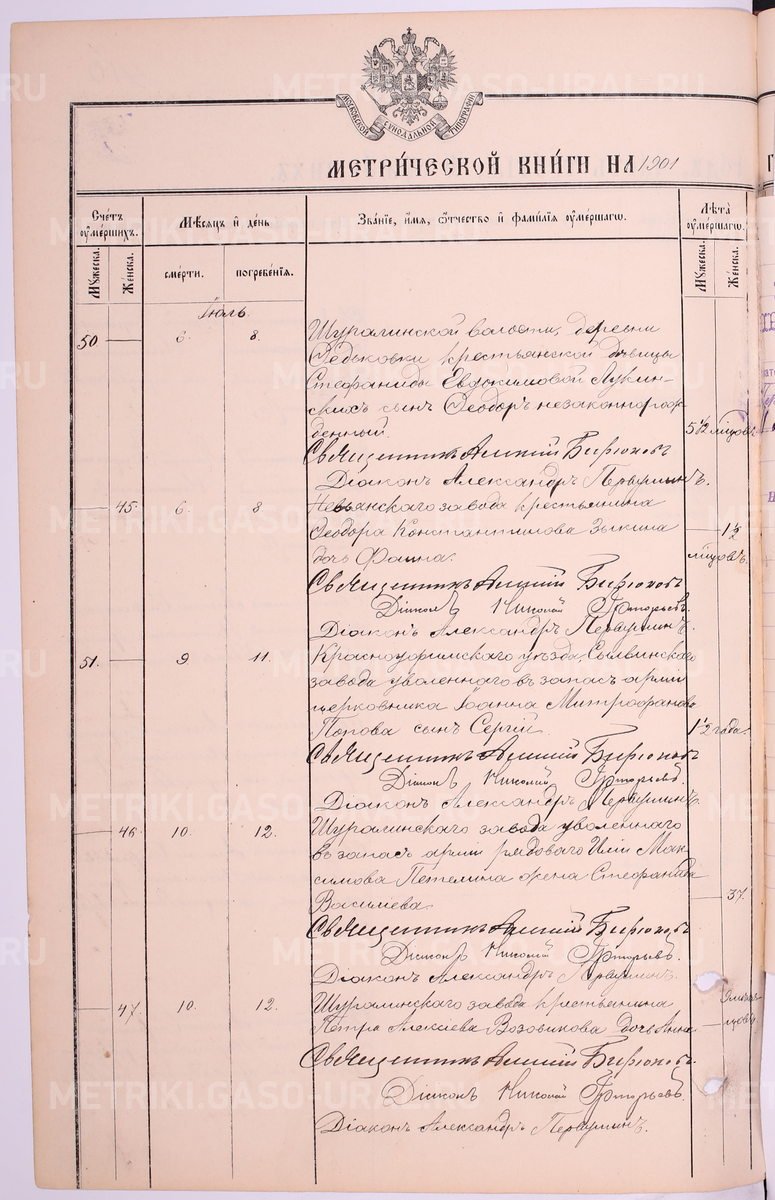 МОСКОВСКОЙ СѴНОДАЛЬНОЙ ТИПОГРАФІИ
МЕТРИ́ЧЕСКОЙ КНИ́ГИ НА 1901
Счетъ оумершихъ.
Мѣсяцъ и день
Званіе, имя, отчество и фамилія оумершагω.
Лѣта оумершагω.
Мужеска.
Женска.
смерти.
погребенія.
Мужеска.
Женска.
Іюль.
50 — 6. 8. Шуралинской волости, деревни
Федьковки крестьянской дѣвицы
Стефаниды Евдокимовой Лукин-
скихъ сынъ Ѳеодоръ незаконнорож-
денный. 5 1/2 мѣсяцовъ.
Священникъ Алексій Бирюковъ
Діаконъ Александръ Первушинъ.
— 45. 6. 8. Невьянскаго завода крестьянина
Ѳеодора Константинова Зыкина — 1 1/2
дочь Фаина. мѣсяцовъ.
Священникъ Алексій Бирюковъ
Діаконъ Николай Григорьевъ.
Діаконъ Александръ Первушинъ.
51. — 9 11. Красноуфимскаго уѣзда, Сылвинскаго
завода уволеннаго въ запасъ арміи
церковника Іоанна Митрофанова
Попова сынъ Сергій. 1 1/2 года.
Священникъ Алексій Бирюковъ
Діаконъ Николай Григорьевъ.
Діаконъ Александръ Первушинъ.
— 46 10. 12. Шуралинскаго завода уволеннаго
въ запасъ арміи рядоваго Иліи Мак-
симова Петелина жена Стефанида
Васильева. — 37.
Священникъ Алексій Бирюковъ
Діаконъ Николай Григорьевъ.
Діаконъ Александръ Первушинъ.
— 47. 10. 12. Шуралинскаго завода крестьянина
Петра Алексіева Возовикова дочь Анна —
Священникъ Алексій Бирюковъ.
Діаконъ Николай Григорьевъ.
Діаконъ Александръ Первушинъ.
METRIKI.GASO-URAL.RU